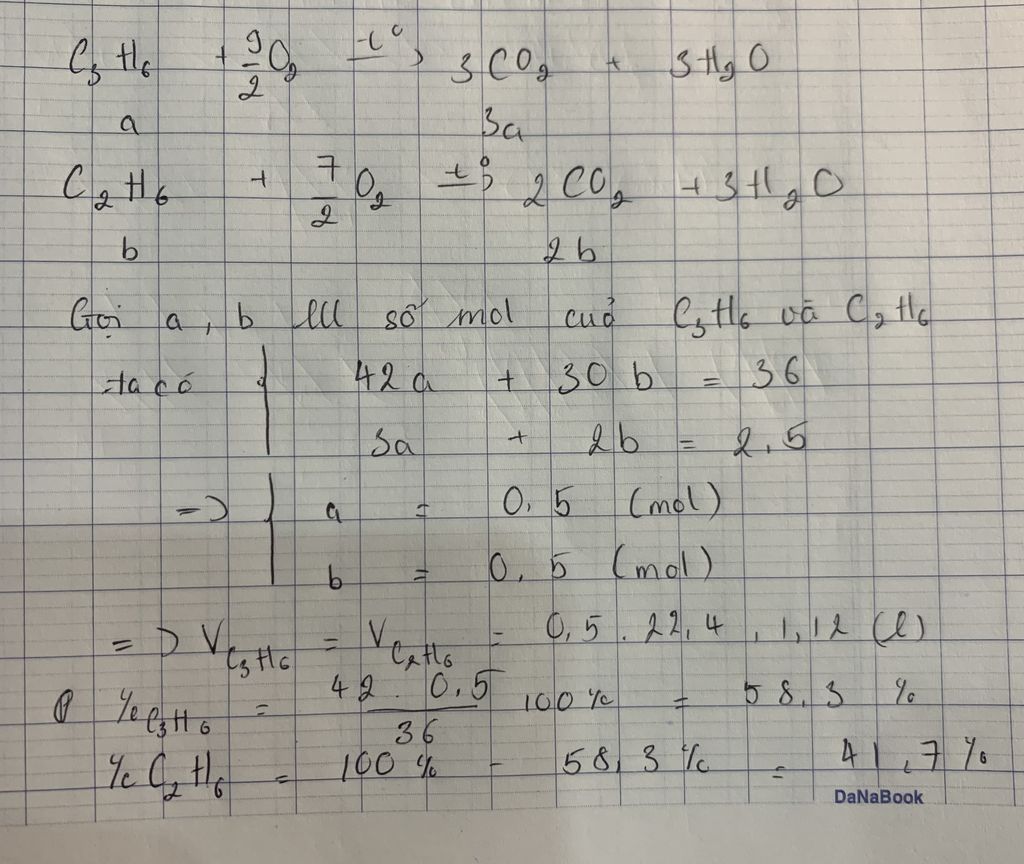 C₃H₆ + 9/2 O₂ t°→ 3CO₂ + 3H₂O
a 3a
C₂H₆ + 7/2 O₂ t°→ 2CO₂ + 3H₂O
b 2b
Gọi a, b là số mol của C₃H₆ và C₂H₆
ta có { 42a + 30b = 36
3a + 2b = 2,5
=> { a = 0,5 (mol)
b = 0,5 (mol)
=> V C₃H₆ = V C₂H₆ = 0,5 . 22,4 , 1,12 (l)
% C₃H₆ = 42 . 0,5 / 36 100% = 58,3 %
% C₂H₆ = 100 % - 58,3 % = 41,7 %
DaNaBook